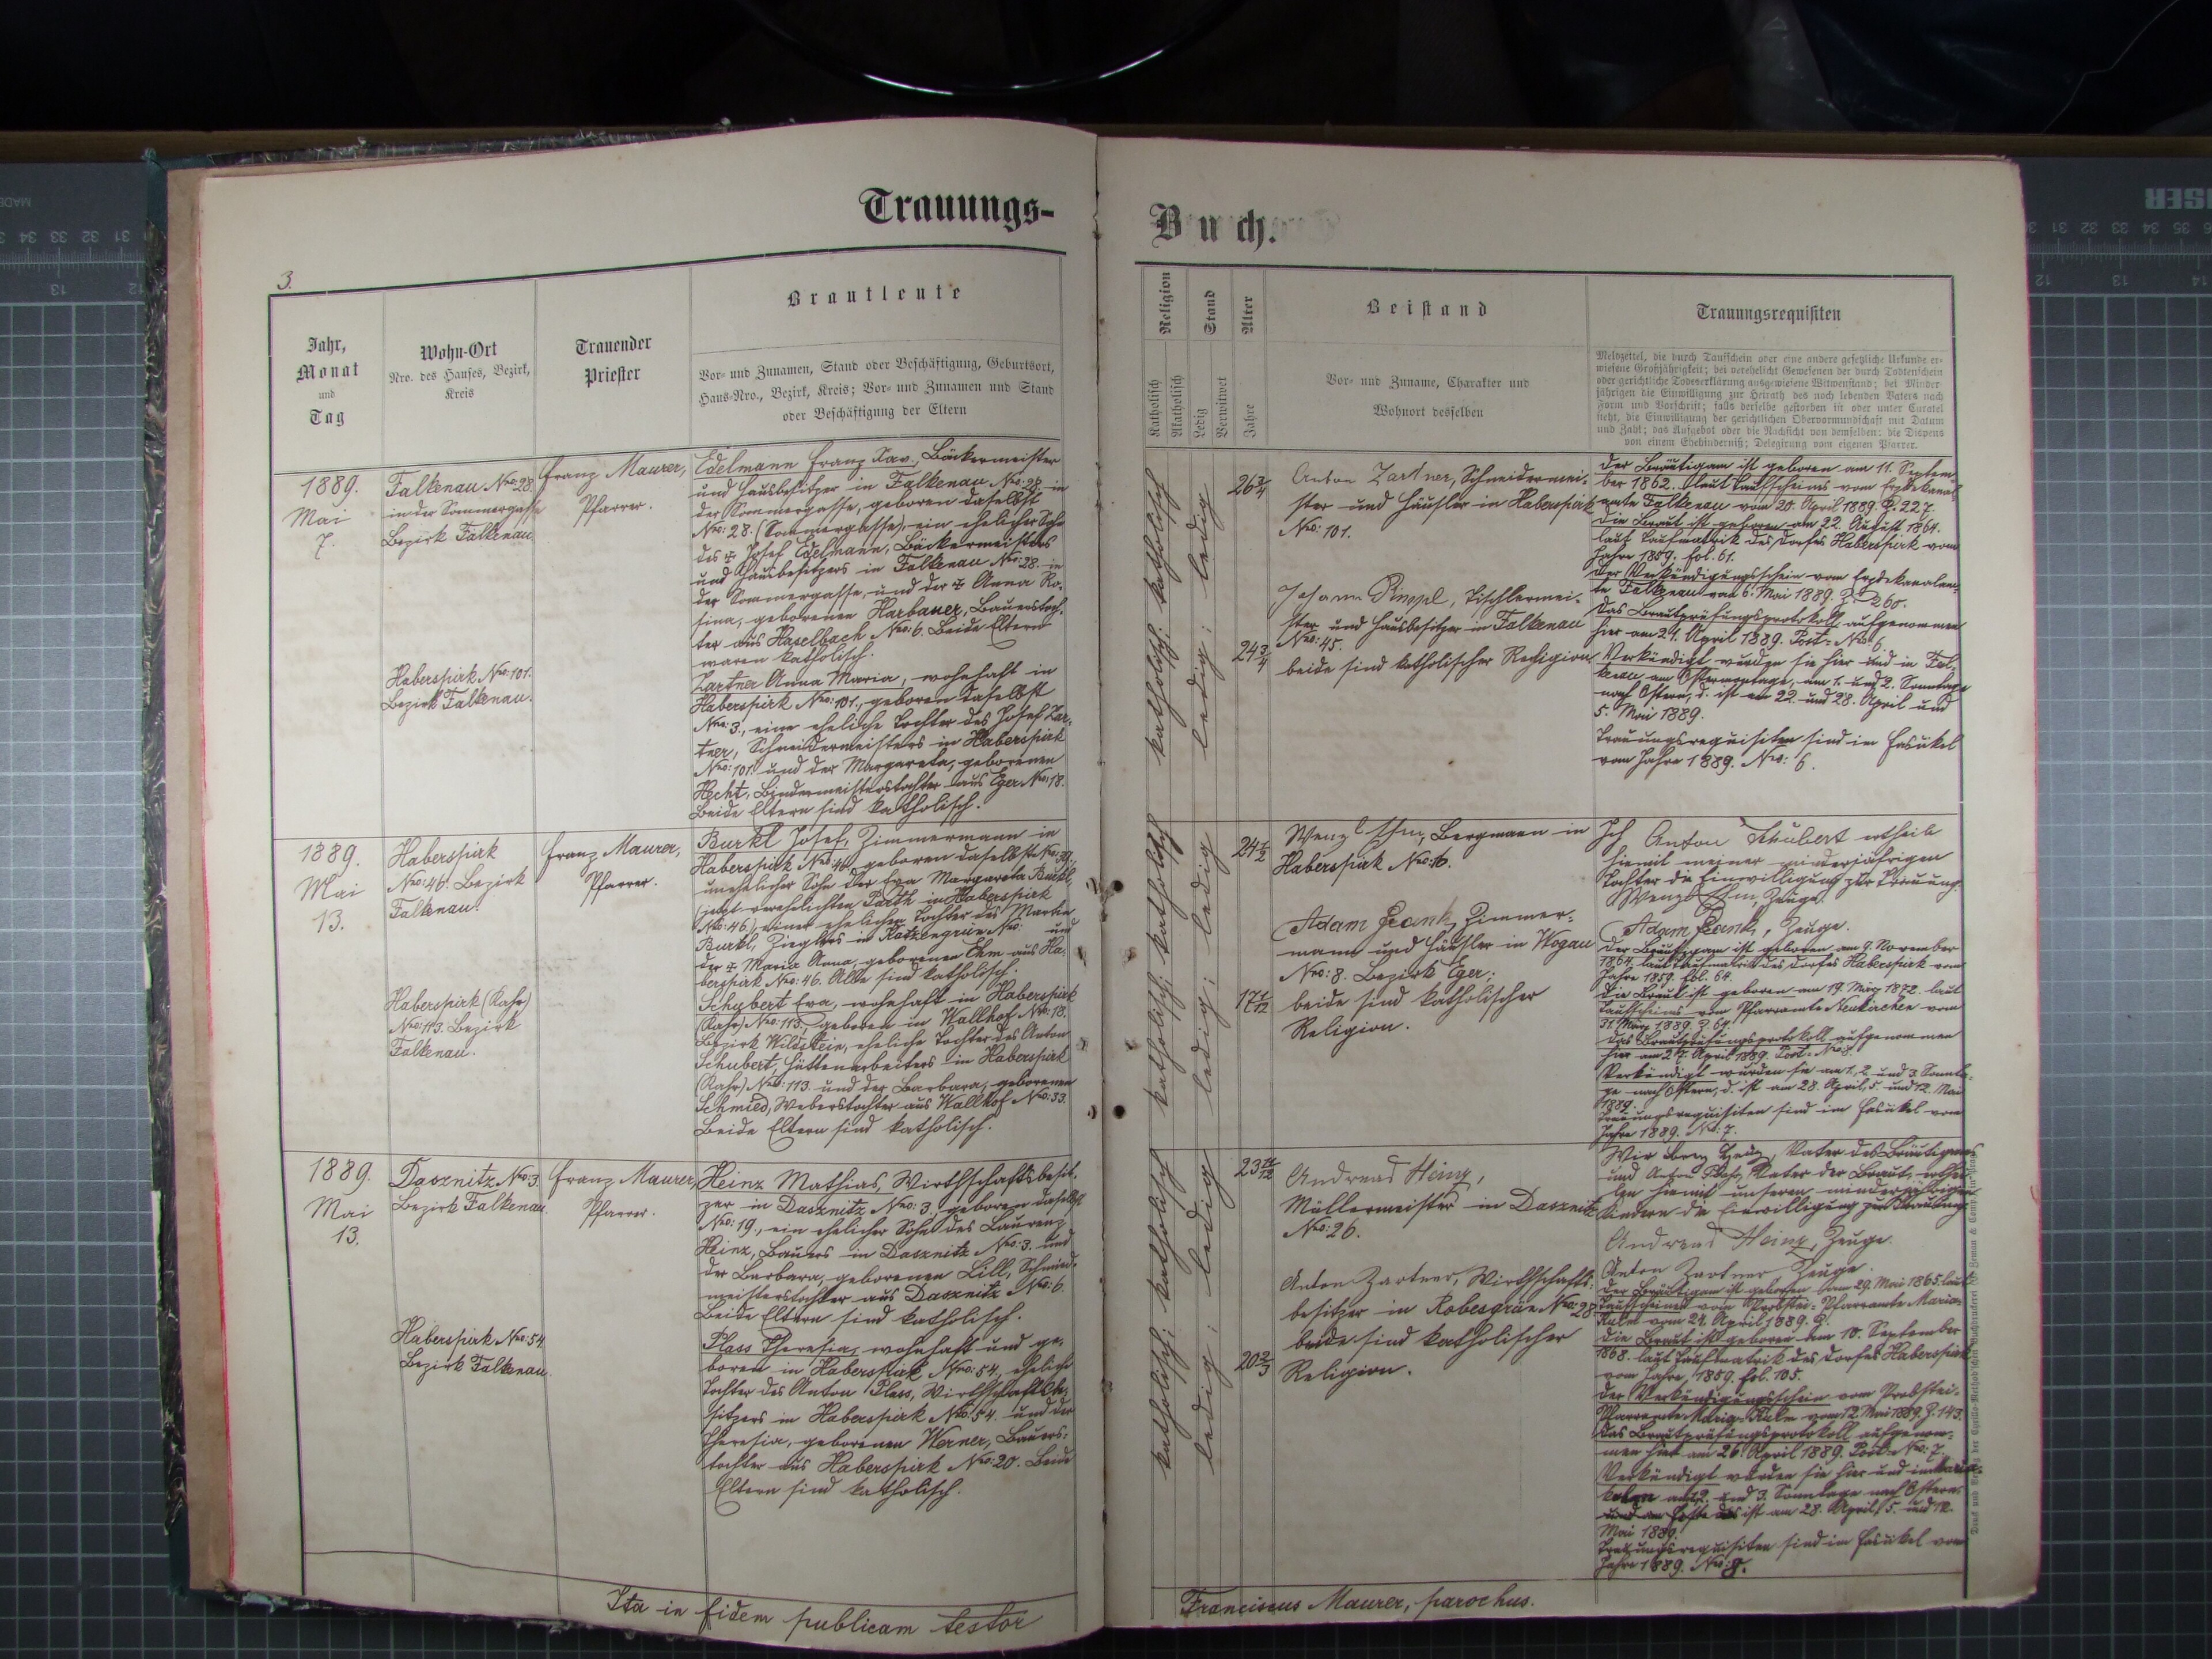 Trauungs-
Buch.
3.
Jahr,
Monat
und
Tag
Wohn-Ort
Nro. des Hauses, Bezirk,
Kreis
Trauender
Priester
Brautleute
Vor- und Zunamen, Stand oder Beschäftigung, Geburtsort,
Haus-Nro., Bezirk, Kreis; Vor- und Zunamen und Stand
oder Beschäftigung der Eltern
Religion
Katholisch
Akatholisch
Stand
Ledig
Verwitwet
Alter
Jahre
Beistand
Vor- und Zuname, Charakter und
Wohnort desselben
Trauungsrequisiten
Meldzettel, die durch Taufschein oder eine andere gesetzliche Urkunde er-
wiesene Großjährigkeit; bei verehelicht Gewesenen der durch Todtenschein
oder gerichtliche Todeserklärung ausgewiesene Witwenstand; bei Minder
jährigen die Einwilligung zur Heirath des noch lebenden Vaters nach
Form und Vorschrift; falls derselbe gestorben ist oder unter Curatel
steht, die Einwilligung der gerichtlichen Obervormundschaft mit Datum
und Zahl; das Aufgebot oder die Nachsicht von demselben: die Dispens
von einem Ehehinderniß; Delegirung vom eigenen Pfarrer.
1889.
Mai
7.
Falkenau Nro: 28.
in der Sommergasse
Bezirk Falkenau
Haberspirk Nro: 101.
Bezirk Falkenau.
Franz Maurer,
Pfarrer.
Edelmann Franz Xav., Bäckermeister
und Hausbesitzer in Falkenau Nro: 28. in
der Sommergasse, geboren daselbst
Nro: 28. (Sommergasse), ein ehelicher Sohn
des † Josef Edelmann, Bäckermeisters
und Hausbesitzers in Falkenau Nro: 28. in
der Sommergasse, und der † Anna Ro-
sina, geborenen Harbauer, Bauerstoch-
ter aus Haselbach Nro: 6. Beide Eltern
waren katholisch.
Zartner Anna Maria, wohnhaft in
Haberspirk Nro: 101., geboren daselbst
Nro: 3., eine eheliche Tochter des Josef Zar-
tner, Schneidermeisters in Haberspirk
Nro: 101. und der Margareta, geborenen
Hecht, Bindermeisterstochter aus Eger Nro: 18.
Beide Eltern sind katholisch.
katholisch; katholisch
ledig; ledig
26 3/4
24 3/4
Anton Zartner, Schneidermei-
ster und Häusler in Haberspirk
Nro: 101.
Johann, Tischlermei-
ster und Hausbesitzer in Falkenau
Nro: 45.
beide sind katholischer Religion.
Der Bräutigam ist geboren am 11. Septem-
ber 1862. laut Taufscheins vom Erzdekanal-
amte Falkenau vom 20. April 1889. Z. 227.
Die Braut ist geboren am 22. August 1864.
laut Taufmatrik des Dorfes Haberspirk vom
Jahre 1859. fol. 61.
Der Verkündigungsschein vom Erzdekanalam-
te Falkenau vom 6. Mai 1889. Z. 260.
Das Brautprüfungsprotokoll aufgenommen
hier am 21. April 1889. Post-Nro: 6.
Verkündigt wurden sie hier und in Fal-
kenau am Ostermontage, am 1. und 2. Sonntage
nach Ostern, d. ist am 22. und 28. April und
5. Mai 1889.
Trauungsrequisiten sind im Fasciekel
vom Jahre 1889. Nro: 6.
1889.
Mai
13.
Haberspirk
Nro: 46. Bezirk
Falkenau.
Haberspirk (Rahr)
Nro: 113. Bezirk
Falkenau.
Franz Maurer,
Pfarrer.
Burkl Josef, Zimmermann in
Haberspirk Nro: 46, geboren daselbst Nro: 39.,
unehelicher Sohn der Eva Margareta Burkl,
(jetzt verehelichten Parth in Haberspirk
Nro: 46.), einer ehelichen Tochter des Martin
Burkl, Zieglers in Katzengrün Nro: und
der † Maria Anna, geborenen Ehm aus Ha-
berspirk Nro: 46. Alle sind katholisch.
Schubert Eva, wohnhaft in Haberspirk
(Rahr) Nro: 113., geboren in Wallhof Nro: 18.
Bezirk Wildstein, eheliche Tochter des Anton
Schubert, Hüttenarbeiters in Haberspirk
(Rahr) Nro: 113. und der Barbara, geborenen
Schmied, Weberstochter aus Wallhof Nro: 33.
Beide Eltern sind katholisch.
katholisch; katholisch
ledig; ledig
24 1/2
17 1/12
Wenzl Ehm, Bergmann in
Haberspirk Nro: 6.
Adam Frank, Zimmer-
mann und Häusler in Wogau
Nro: 8. Bezirk Eger;
beide sind katholischer
Religion.
Ich Anton Schubert ertheile
hiemit meiner minderjährigen
Tochter die Einwilligung zur Trauung.
Wenzl Ehm, Zeuge
Adam Frank, Zeuge.
Der Bräutigam ist geboren am 9. November
1864. laut Taufmatrik des Dorfes Haberspirk vom
Jahre 1859. fol. 64.
Die Braut ist geboren am 19. März 1872. laut
Taufscheins vom Pfarramte Neukirchen vom
31. März 1889. Z. 64.
Das Brautprüfungsprotokoll aufgenommen
hier am 27. April 1889. Post-Nro: 8.
Verkündigt wurden sie am 1., 2. und 3. Sonnta-
ge nach Ostern, d. ist am 28. April, 5. und 12. Mai
1889.
Trauungsrequisiten sind im Fasciekel vom
Jahre 1889. Nro: 7.
1889.
Mai
13.
Dasznitz Nro: 3.
Bezirk Falkenau.
Haberspirk Nro: 54.
Bezirk Falkenau.
Franz Maurer,
Pfarrer.
Heinz Mathias, Wirthschaftsbesit-
zer in Dasznitz Nro: 3., geboren daselbst
Nro: 19., ein ehelicher Sohn des Laurenz
Heinz, Bauers in Dasznitz Nro: 3. und
der Barbara, geborenen Lill, Schmied-
meisterstochter aus Dasznitz Nro: 6.
Beide Eltern sind katholisch.
Plass Theresia, wohnhaft und ge-
boren in Haberspirk Nro: 54., eheliche
Tochter des Anton Plass, Wirthschaftsbe-
sitzers in Haberspirk Nro: 54. und der
Theresia, geborenen Werner, Bauers-
tochter aus Haberspirk Nro: 20. Beide
Eltern sind katholisch.
katholisch; katholisch
ledig; ledig
23 11/12
20 2/3
Andreas Heinz,
Müllermeister in Dasznitz
Nro: 26.
Anton Zartner, Wirthschafts-
besitzer in Robesgrün Nro: 28
beide sind katholischer
Religion.
Wir Heinz, Vater des Bräutigams
und Anton Plass, Vater der Braut, erthei-
len hiemit unseren minderjährigen
Kindern die Einwilligung zur Trauung.
Andreas Heinz, Zeuge.
Anton Zartner Zeuge.
Der Bräutigam ist geboren am 29. Mai 1865. laut
Taufscheines vom Probstei-Pfarramte Maria-
Kulm vom 24. April 1889. Z.
Die Braut ist geboren am 10. September
1868. laut Taufmatrik des Dorfes Haberspirk
vom Jahre 1859. fol. 105.
Der Verkündigungsschein vom Probstei-
Pfarramte Maria-Kulm vom 12. Mai 1889. Z. 143.
Das Brautprüfungsprotokoll aufgenom-
men hier am 26. April 1889. Post-Nro: 7.
Verkündigt wurden sie hier und in Maria-
kulm am 1., 2. und 3. Sonntage nach Ostern
ist am 28. April, 5. und 12.
Mai 1889.
Trauungsrequisiten sind im Fasciekel vom
Jahre 1889. Nro: 8.
Ita in fidem publicam testor
Franciscus Maurer, parochus.